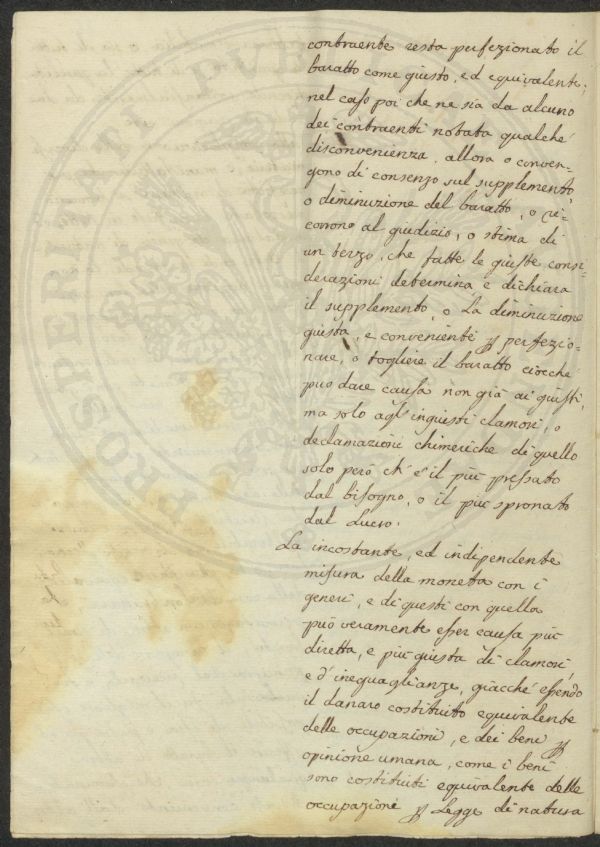 contraente resta perfezionato il
baratto come giusto, ed equivalente;
nel caso poi che ne sia da alcuno
dei contraenti notata qualche
disconvenienza, allora o conven-
gono di consenzo sul supplemento,
o diminuzione del baratto, o ri-
corrono al giudizio, o stima di
un terzo, che fatte le giuste consi-
derazioni determina e dichiara
il supplemento, o la diminuzione
giusta, e conveniente perfezio-
nare, o togliere il baratto ciocche
può dare causa non già ai giusti,
ma solo agl'ingiusti clamori, o
declamazioni chimeriche di quello
solo però ch'è il più pressato
dal bisogno, o il più spronato
dal Lucro.
La incostante, ed independente
misura della moneta con i
generi, e di questi con quella
può veramente esser causa più
diretta, e più giusta di clamori,
e d'ineguaglianze, giacché essendo
il danaro costituito equivalente
delle occupazioni, e dei beni
opinione umana, come i beni
sono costituiti equivalente delle
occupazione Legge di natura
PROSPERITATI PVBL